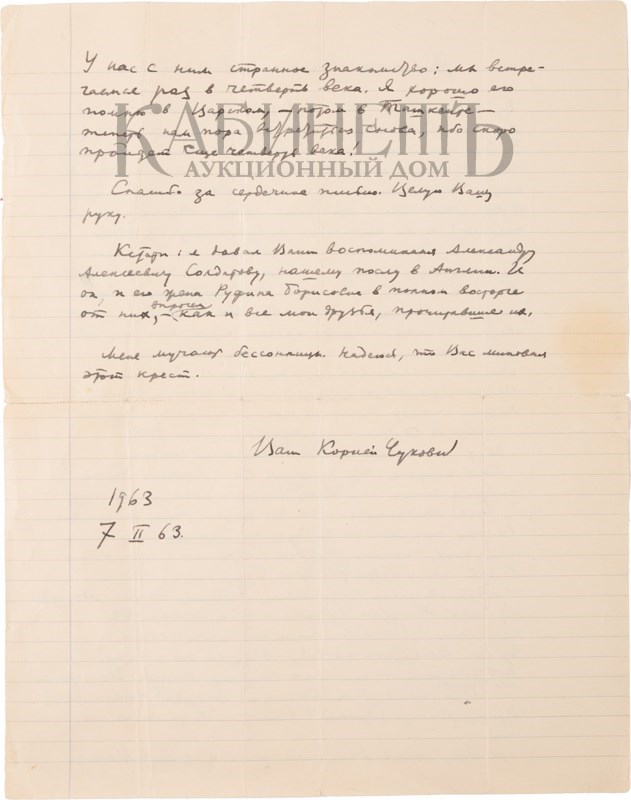 У нас с ним странное знакомство: мы встре-
чаемся раз в четверть века. Я хорошо его
помню в Царском — потом в Ташкенте —
теперь нам пора встретиться снова, ибо скоро
пройдет еще четверть века!
КАБИНЕТЪ
АУКЦИОННЫЙ ДОМ
Спасибо за сердечное письмо. Целую Вашу
руку.
Кстати: я давал Ваши воспоминания Александру
Алексеевичу Солдатову, нашему послу в Англии. И
он, и его жена Руфина Борисовна в полном восторге
от них, — впрочем, как и все мои друзья, прочитавшие их.
Меня мучают бессонницы. Надеюсь, что Вас миновал
этот крест.
Ваш Корней Чуковский
1963
7 II 63.